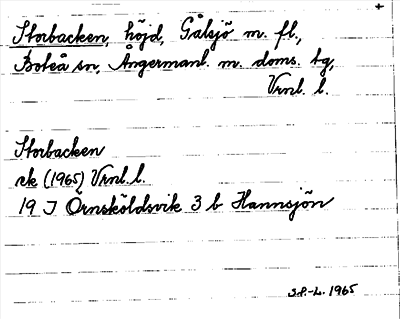 Storbacken, höjd, Gålsjö m. fl.,
Boteå sn, Ångermanl. m. doms. tg,
Vrnl. l.
Storbacken
rek (1965) Vrnl. l.
19 J Örnsköldsvik 3 b Hannsjön
S.P.-L. 1965